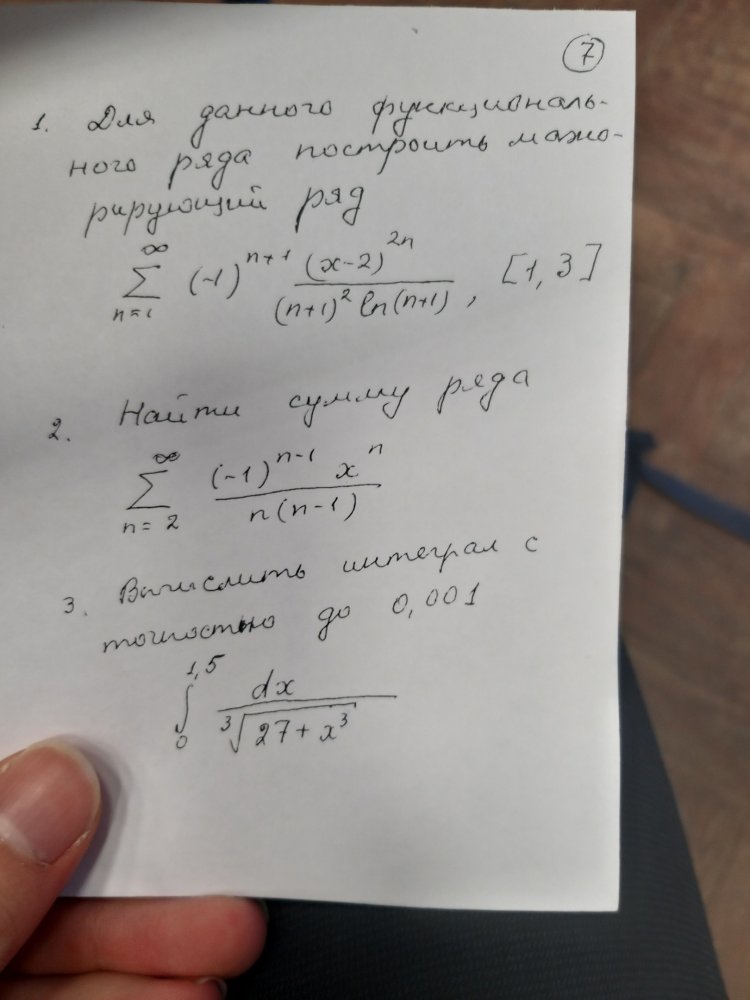 7
1. Для данного функциональ-
ного ряда построить мажо-
рирующий ряд
∞
∑ (-1)^{n+1} \frac{(x-2)^{2n}}{(n+1)^2 ln(n+1)}, [1,3]
n=1
2. Найти сумму ряда
∞
∑ \frac{(-1)^{n-1} x^n}{n(n-1)}
n=2
3. Вычислить интеграл с
точностью до 0,001
1,5
∫ \frac{dx}{\sqrt[3]{27+x^3}}
0